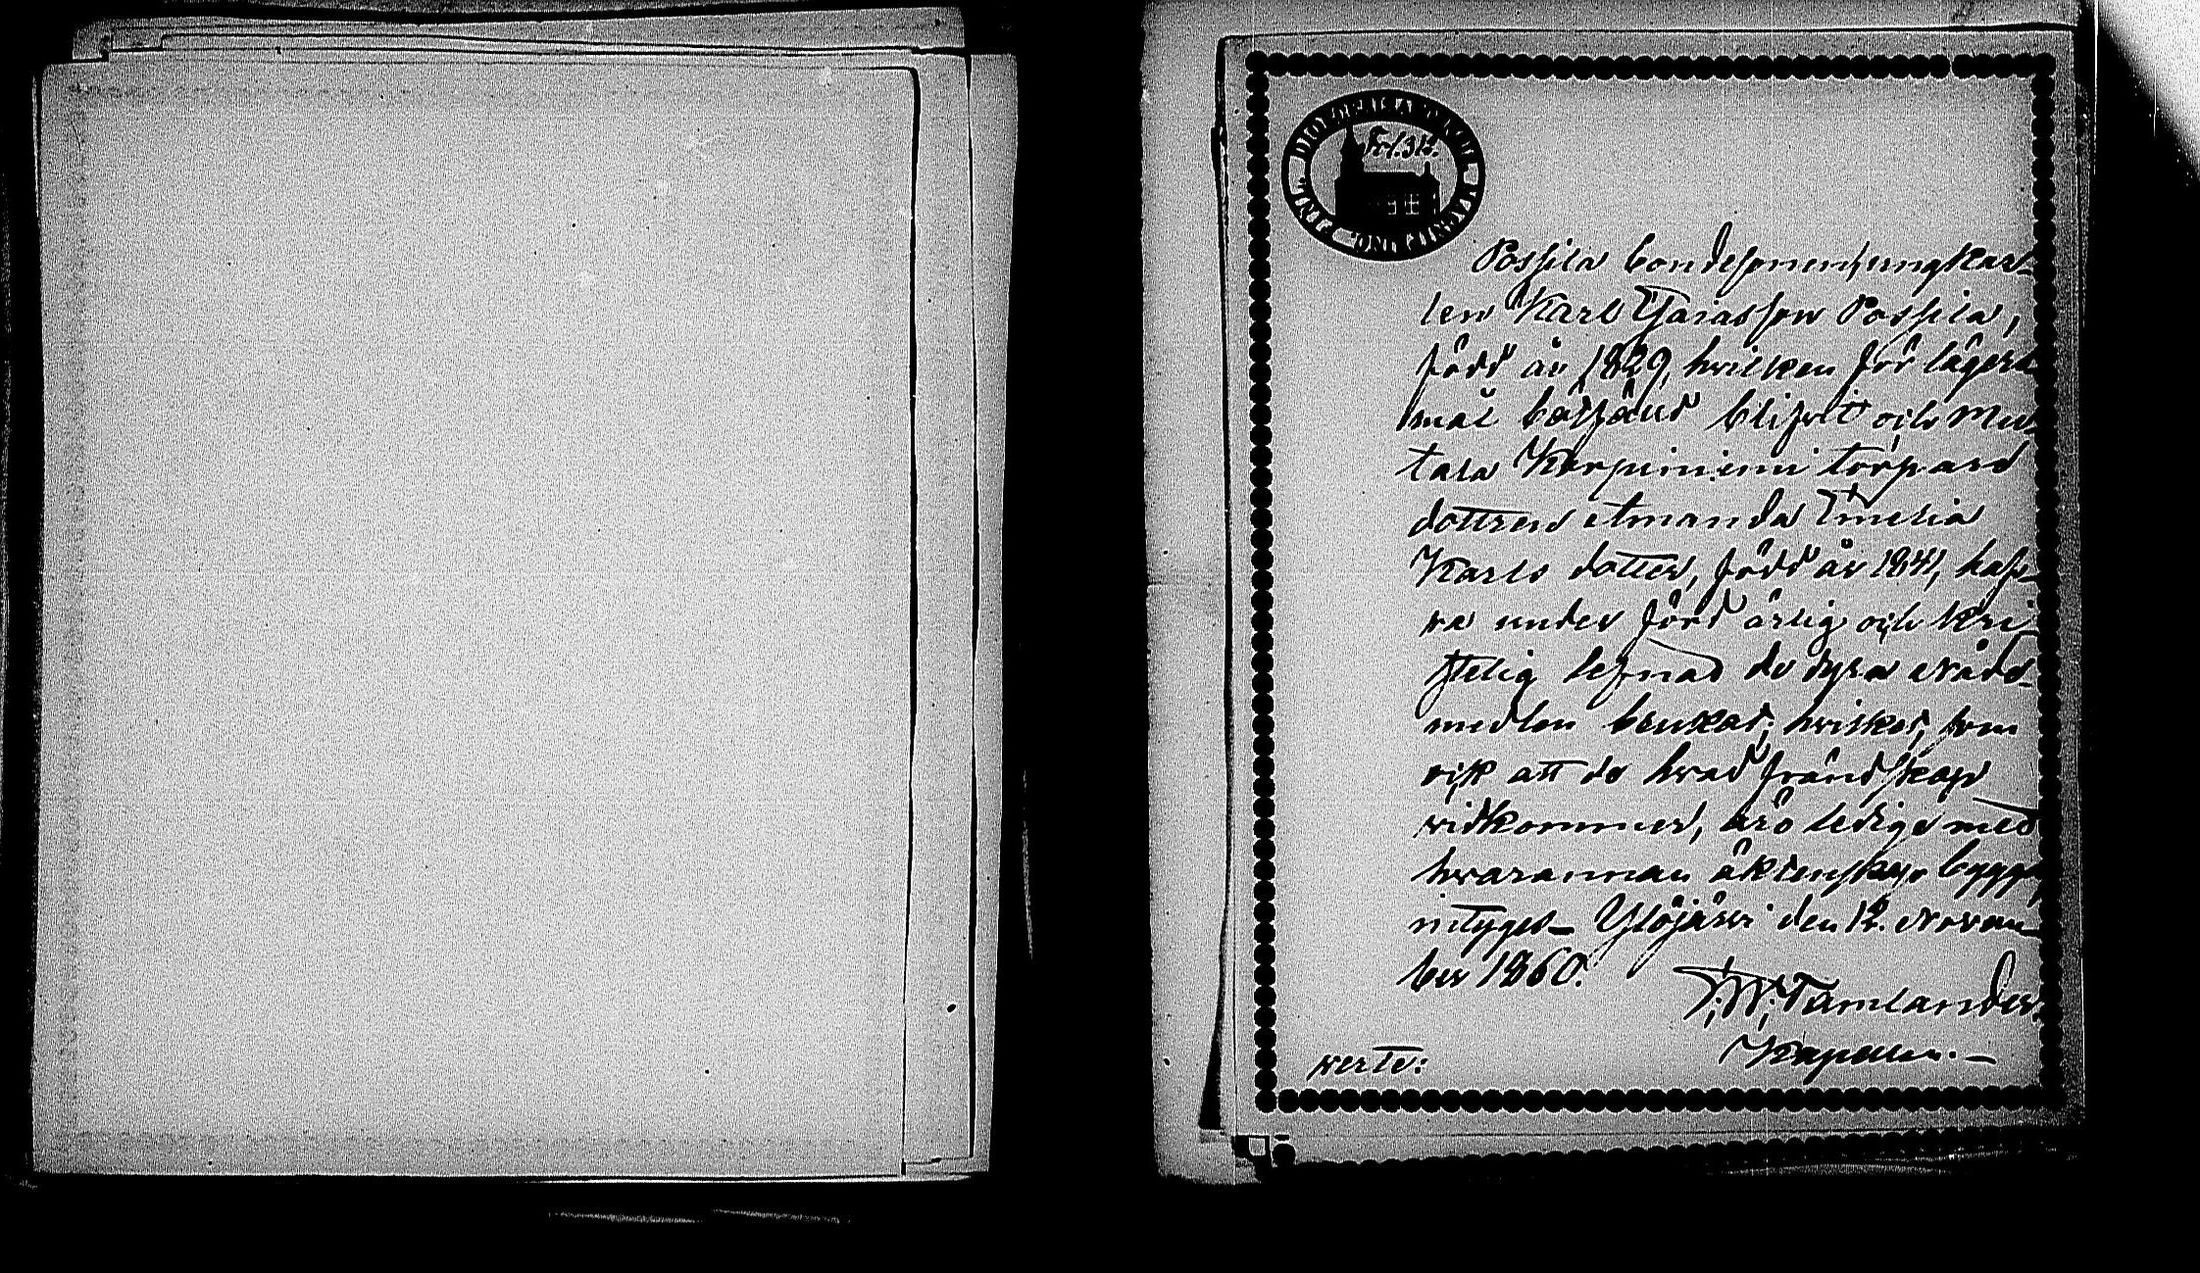 Fol. 312.
Possila bondesonen, ungkar-
len Karl Esaiasson Possila,
född år 1829, hvilken för lägers-
mål botfäld blifvit och Mu-
tala torpare
dottren Amanda Emelia
Karls dotter, född år 1841, haf-
va under förd ärlig och kri-
stelig lefnad de dyra nåde-
medlen brukat; hvilket, som
ock att de hvad frändskap
vidkommer, äro ledige med
hvarannan äktenskap bygga,
intygas_ Ylöjärvi den 12. Novem-
ber 1860.
F. W. Tamlander.
Kapellan._
verte: